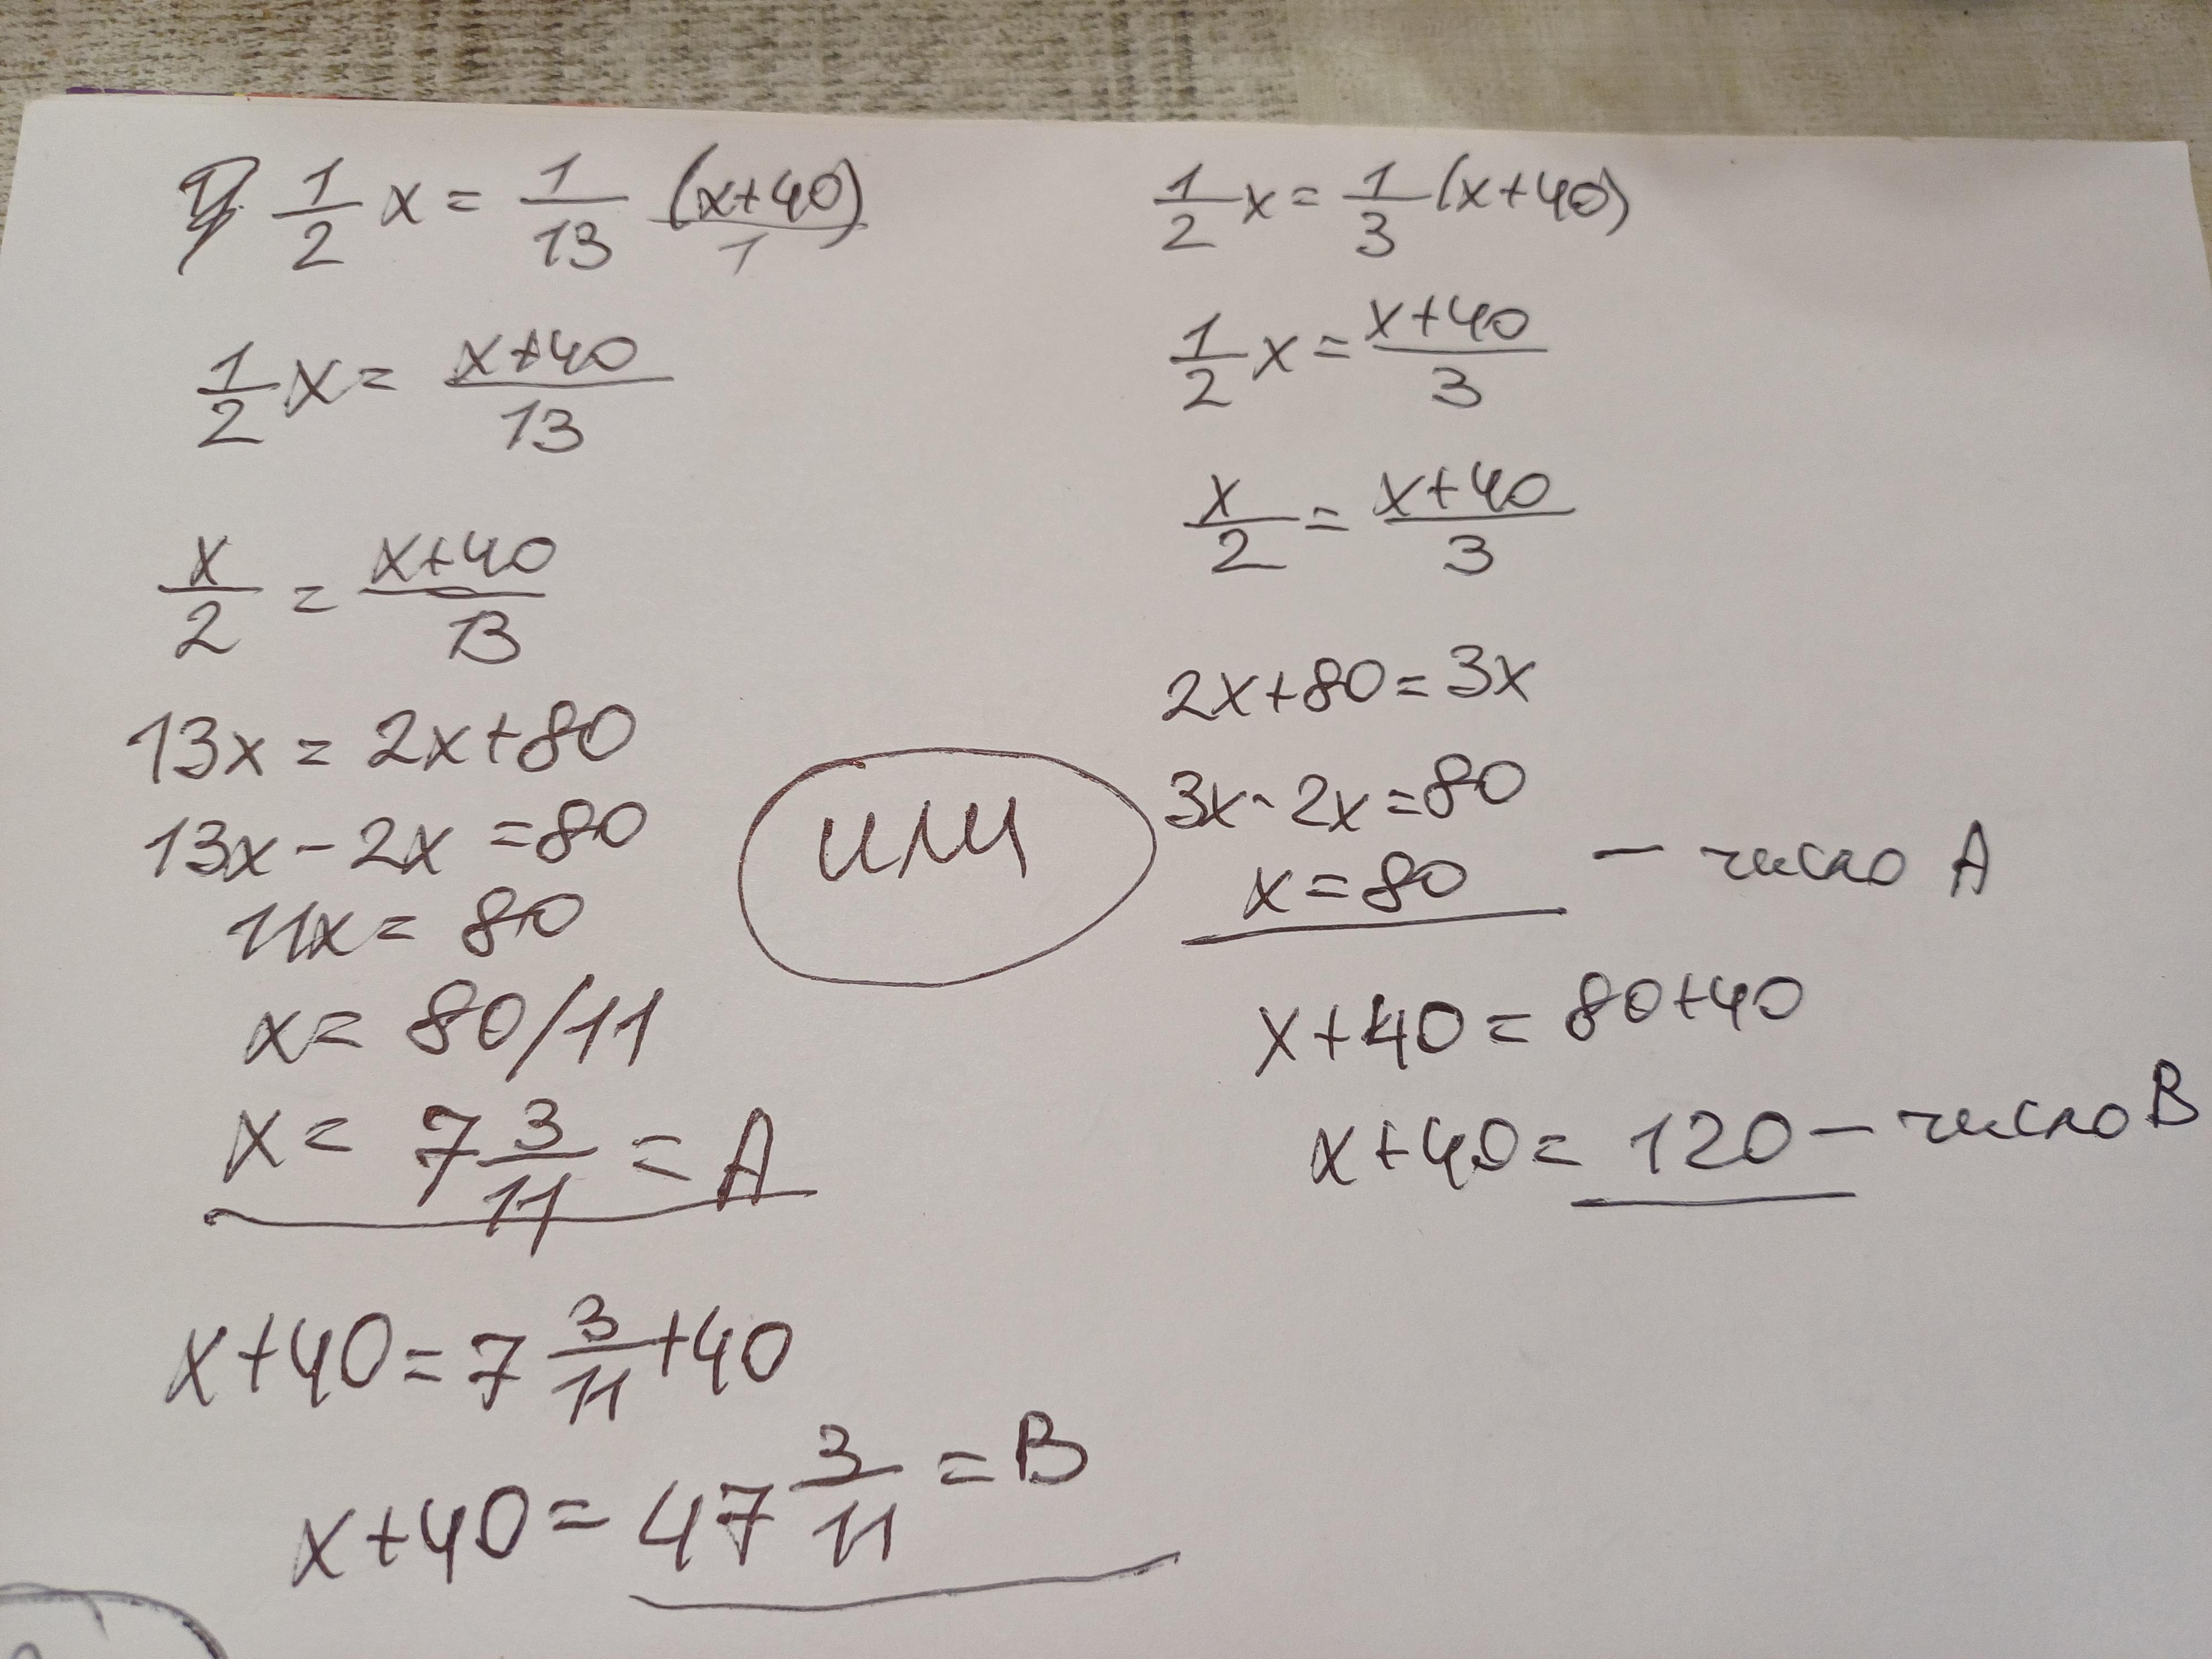 1/2 x = 1/13 (x+40)/1
1/2 x = (x+40)/13
x/2 = (x+40)/13
13x = 2x+80
13x - 2x = 80
11x = 80
x = 80/11
x = 7 3/11 = A
x+40 = 7 3/11 + 40
x+40 = 47 3/11 = B
или
1/2 x = 1/3 (x+40)
1/2 x = (x+40)/3
x/2 = (x+40)/3
2x+80 = 3x
3x - 2x = 80
x = 80 – число A
x+40 = 80+40
x+40 = 120 – число B